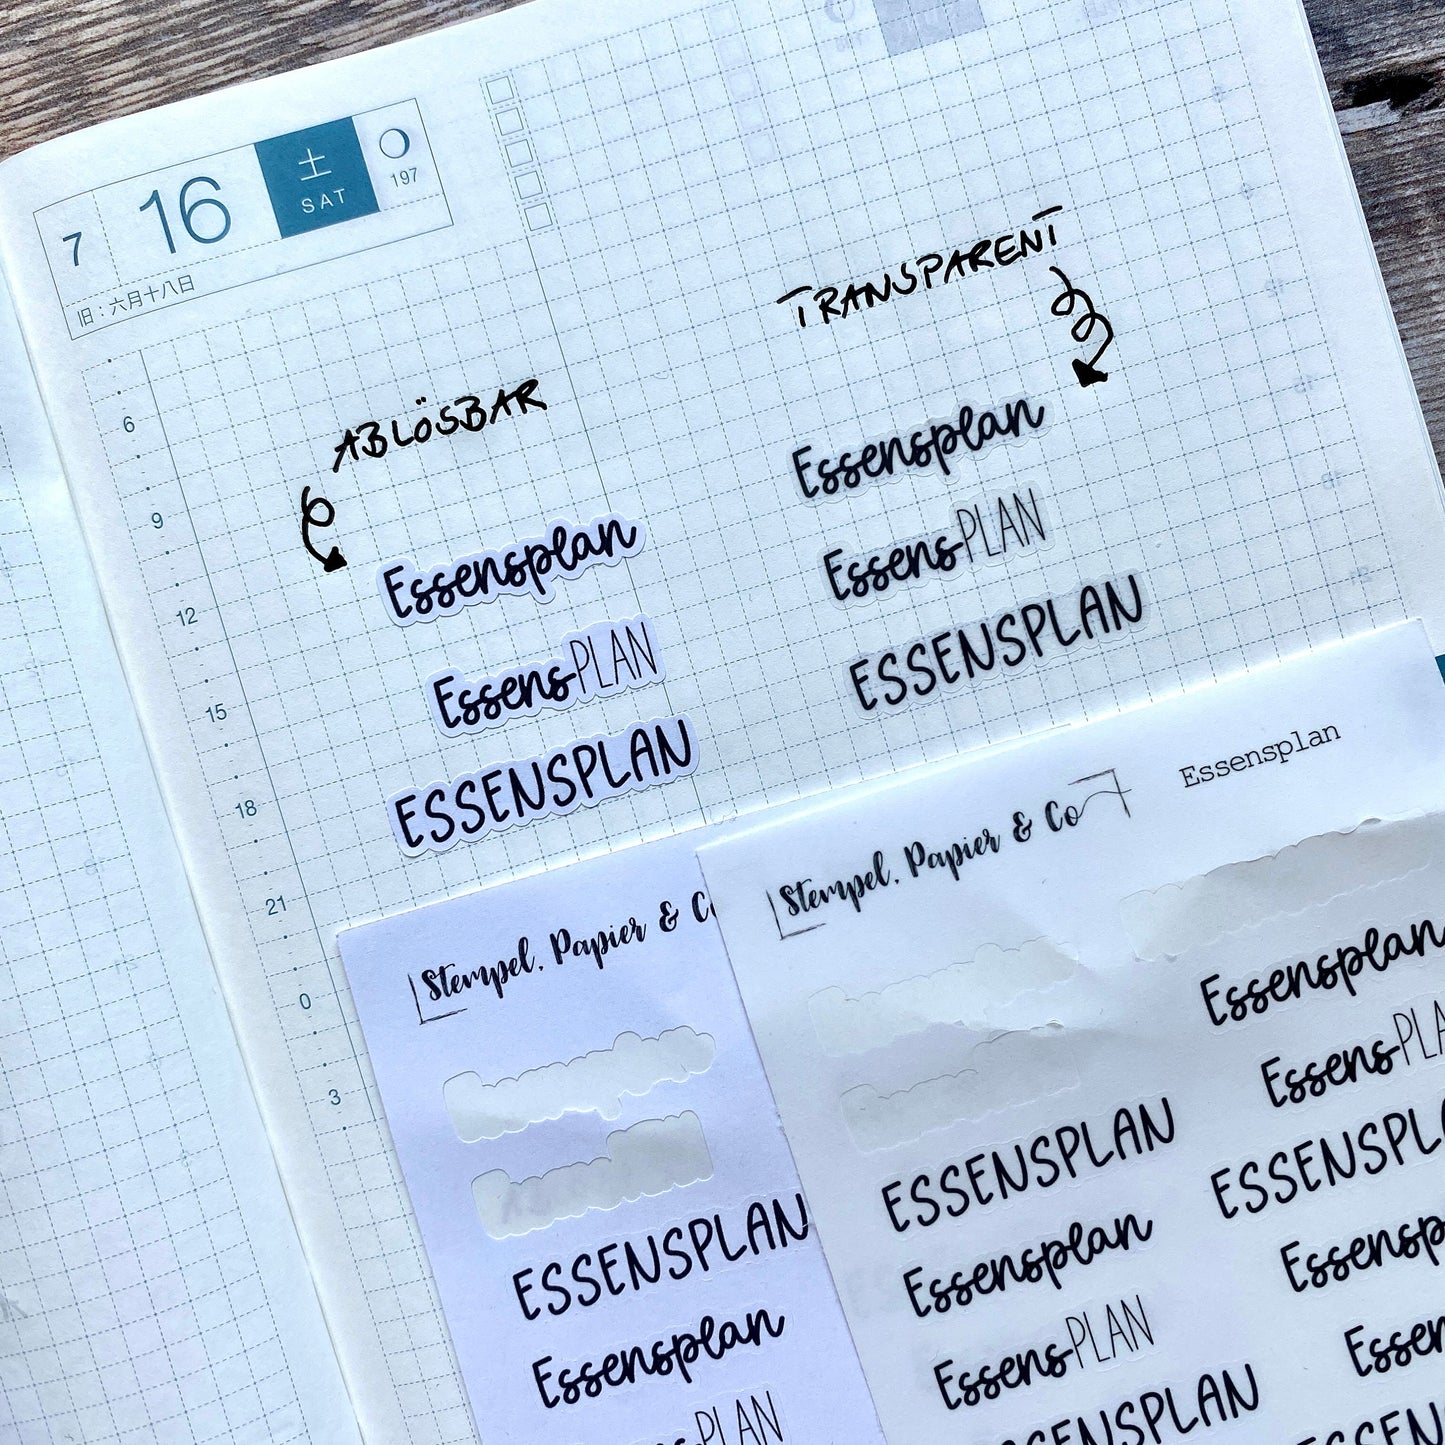 7 16 土 SAT 197
旧：六月十八日
TRANSPARENT
ABLÖSBAR
6
9
12
15
18
21
0
3
Essensplan
EssensPLAN
ESSENSPLAN
Essensplan
EssensPLAN
ESSENSPLAN
Stempel, Papier & Co
ESSENSPLAN
Essensplan
PLAN
Stempel, Papier & Co
Essensplan
ESSENSPLAN
Essensplan
EssensPLAN
ENSPLAN
Essensplan
EssensPLA
ESSENSPL
Essensp
Essen